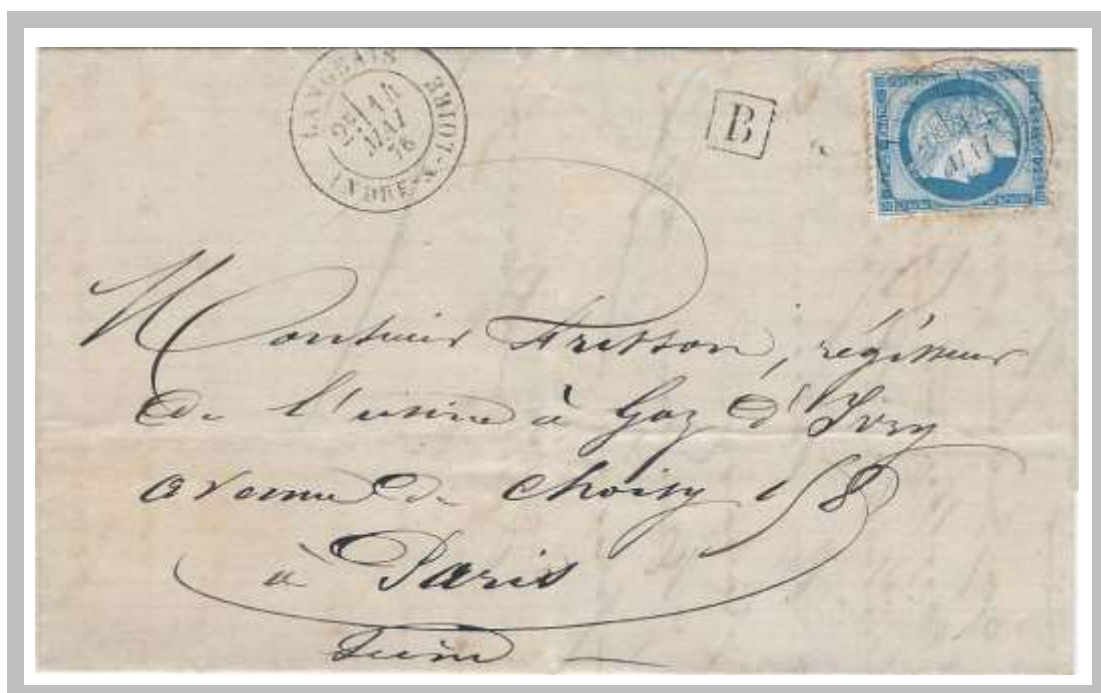 LANGEAIS
2E 14
MAI
76
INDRE-&-LOIRE
B
MAI
Monsieur Frisson, régisseur
de l'usine à Gaz d'Ivry
avenue de Choisy 158
à Paris
Seine